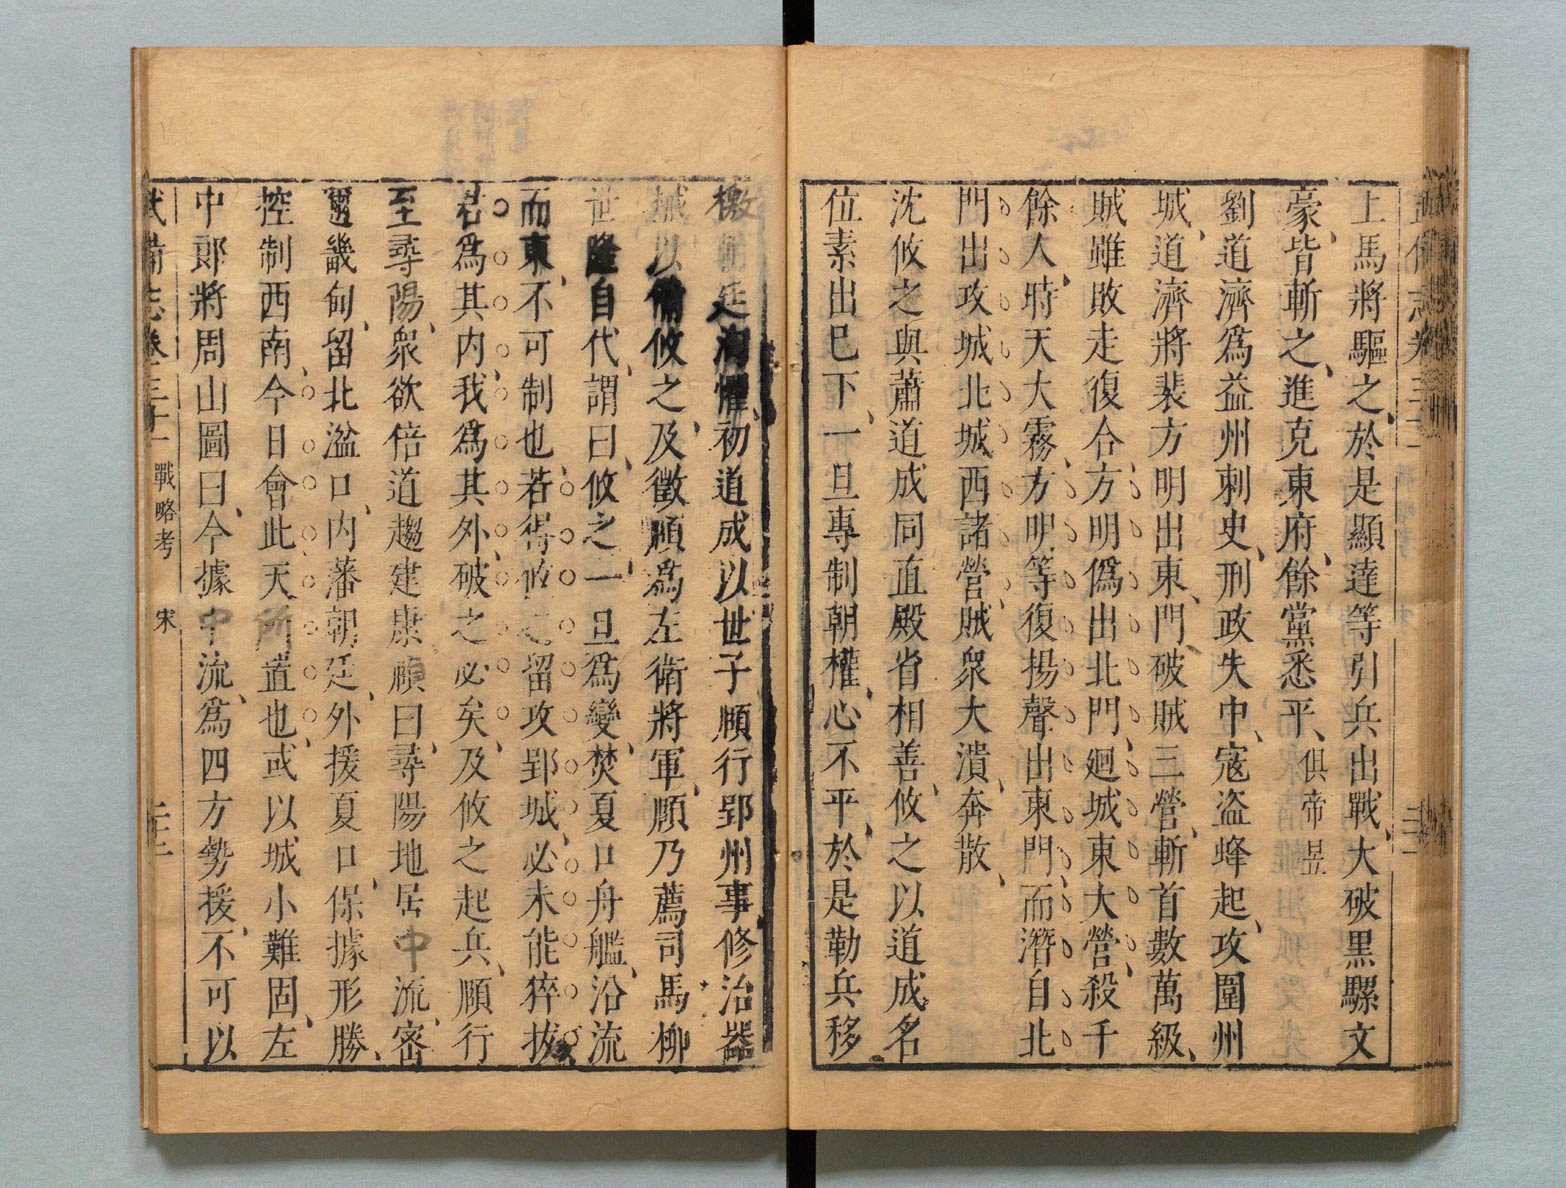 上馬將驅之於是顯達等引兵出戰大破黑騾文
豪皆斬之進克東府餘黨悉平俱帝昱
劉道濟爲益州刺史刑政失中寇盜蜂起攻圍州
城道濟將裴方明出東門破賊三營斬首數萬級
賊雖敗走復合方明僞出北門廻城東大營殺千
餘人時天大霧方明等復揚聲出東門而潛自北
門出攻城北城西諸營賊衆大潰奔散
沈攸之與蕭道成同直殿省相善攸之以道成名
位素出已下一旦專制朝權心不平於是勒兵移
檄朝廷洶懼初道成以世子賾行郢州事修治器
械以備攸之及徵賾爲左衛將軍賾乃薦司馬柳
世隆自代謂曰攸之一旦爲變焚夏口舟艦沿流
而東不可制也若得攸之留攻郢城必未能猝拔
君爲其内我爲其外破之必矣及攸之起兵賾行
至尋陽衆欲倍道趨建康賾曰尋陽地居中流密
邇畿甸留北湓口内藩朝廷外援夏口保據形勝
控制西南今日會此天所置也或以城小難固左
中郎將周山圖曰今據中流爲四方勢援不可以
武備志卷三十一 戰略考 宋 二十二